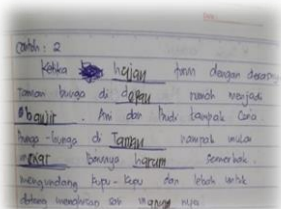 Contoh : 2
Ketika hujan turun dengan deras
Taman bunga di depan rumah menjadi
banjir. Ani dan Budi tampak
bunga-bunga di Taman nampak mulai
mekar baunya harum semerbak.
mengundang kupu-kupu dan lebah untuk
datang menghisap nya